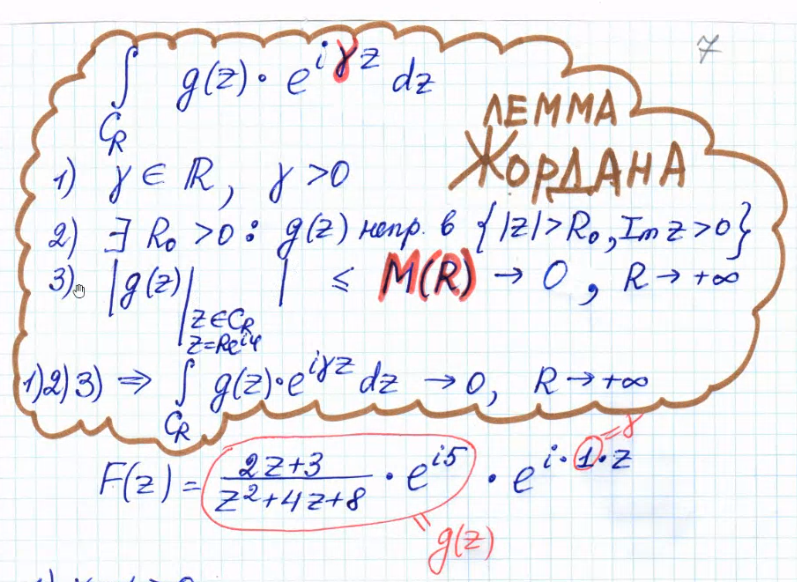 7
∫_{C_R} g(z)·e^{iγz} dz
ЛЕММА
ЖОРДАНА
1) γ ∈ ℝ, γ > 0
2) ∃ R₀ > 0 : g(z) непр. в {|z| > R₀, Im z > 0}
3) |g(z)|_{z∈C_R, z=Re^{iφ}}| ≤ M(R) → 0, R → +∞
1)2)3) ⇒ ∫_{C_R} g(z)·e^{iγz} dz → 0, R → +∞
F(z) = (2z+3)/(z²+4z+8) · e^{i5} · e^{i·1·z}
=γ
= g(z)